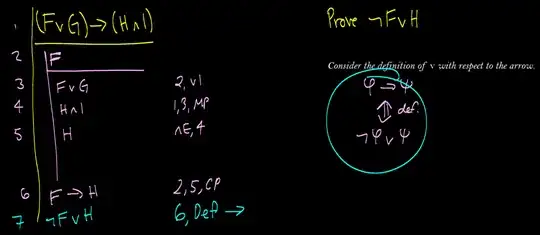 1 (F∨G)→(H∧I)
2 F
3 F∨G 2, ∨I
4 H∧I 1,3, MP
5 H ∧E,4
6 F→H 2,5,CP
7 ¬F∨H 6, Def →
Prove ¬F∨H
Consider the definition of ∨ with respect to the arrow.
φ → ψ
⇕ def.
¬φ ∨ ψ